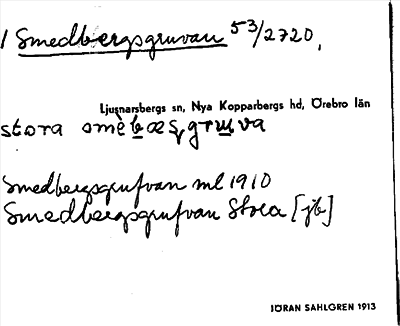 1 Smedbergsgruvan 53/2720,
Ljusnarsbergs sn, Nya Kopparbergs hd, Örebro län
stora
Smedbergsgrufvan ml 1910
Smedbergsgrufvan Stora [jb]
JÖRAN SAHLGREN 1913